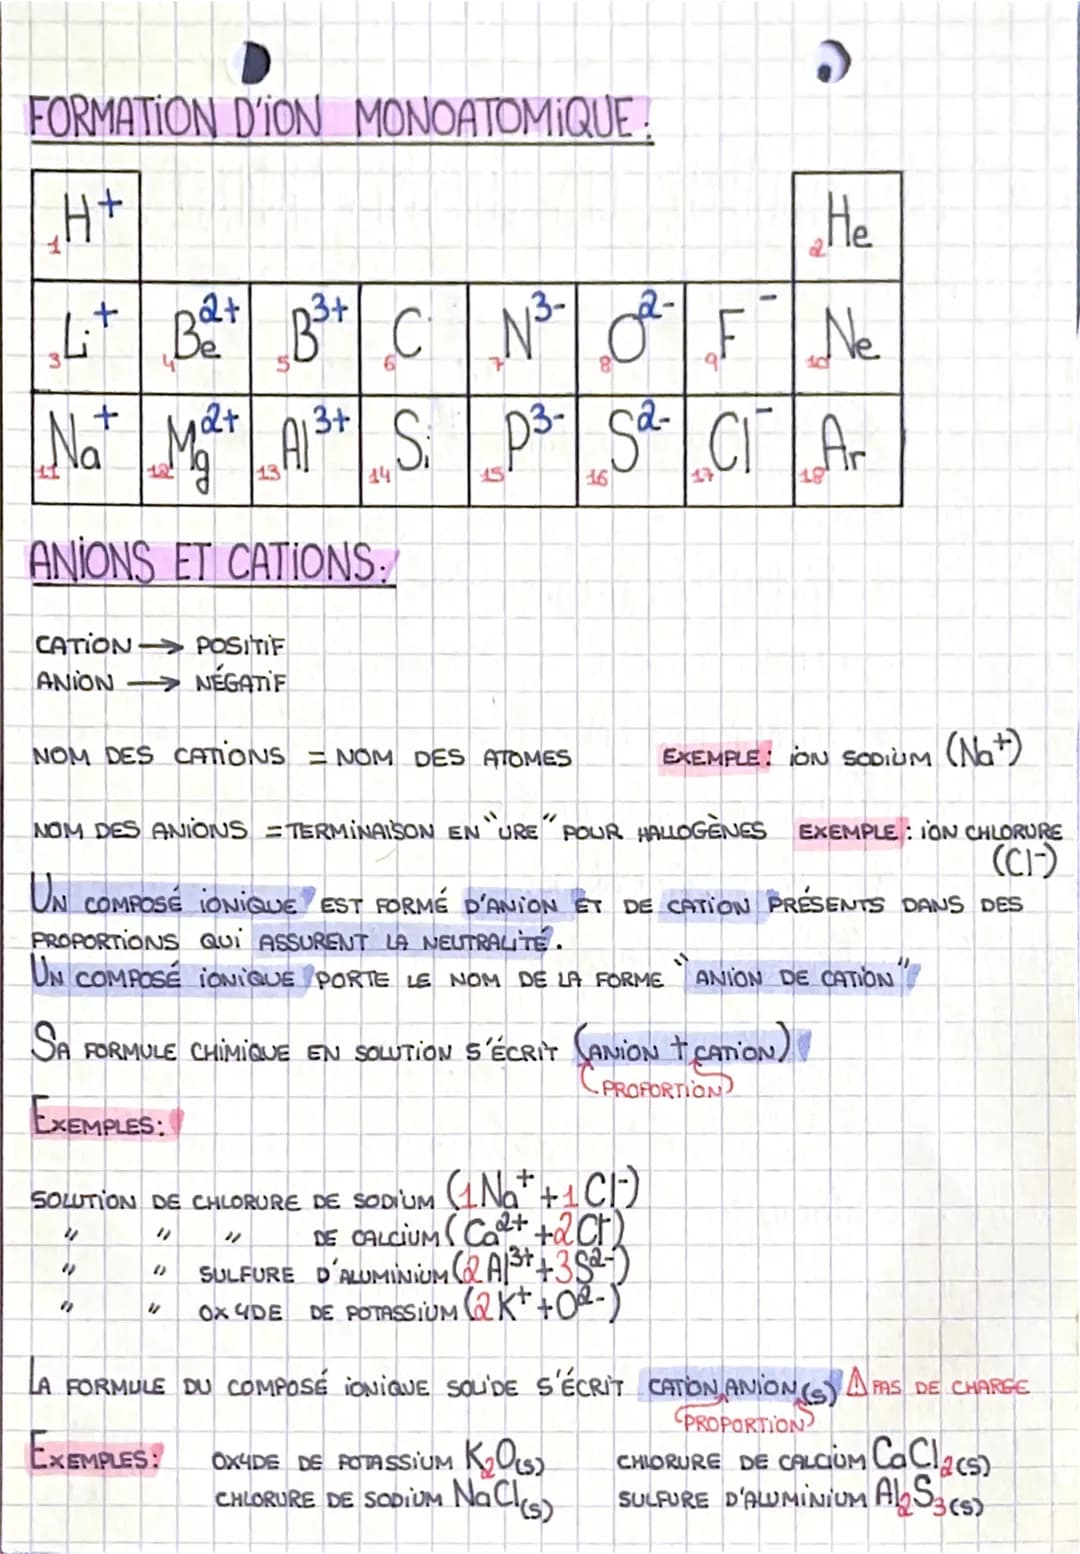 FORMATION D'ION MONOATOMIQUE:
1 H+ 2 He
3 Li+ 4 Be2+ 5 B3+ 6 C 7 N3- 8 O2- 9 F- 10 Ne
11 Na+ 12 Mg2+ 13 Al3+ 14 Si 15 P3- 16 S2- 17 Cl- 18 Ar
ANIONS ET CATIONS:
CATION → POSITIF
ANION → NÉGATIF
NOM DES CATIONS = NOM DES ATOMES EXEMPLE: ION SODIUM (Na+)
NOM DES ANIONS = TERMINAISON EN "URE" POUR HALLOGÈNES EXEMPLE: ION CHLORURE
(Cl-)
UN COMPOSÉ IONIQUE EST FORMÉ D'ANION ET DE CATION PRÉSENTS DANS DES
PROPORTIONS QUI ASSURENT LA NEUTRALITÉ.
UN COMPOSÉ IONIQUE PORTE LE NOM DE LA FORME "ANION DE CATION"
SA FORMULE CHIMIQUE EN SOLUTION S'ÉCRIT (ANION + CATION)
PROPORTION
EXEMPLES:
SOLUTION DE CHLORURE DE SODIUM (1Na+ + 1Cl-)
" " " DE CALCIUM (Ca2+ + 2Cl-)
" " SULFURE D'ALUMINIUM (2Al3+ + 3S2-)
" " OXYDE DE POTASSIUM (2K+ + O2-)
LA FORMULE DU COMPOSÉ IONIQUE SOLIDE S'ÉCRIT CATION ANION (s) ⚠ PAS DE CHARGE
PROPORTION
EXEMPLES: OXYDE DE POTASSIUM K2O(s) CHLORURE DE CALCIUM CaCl2(s)
CHLORURE DE SODIUM NaCl(s) SULFURE D'ALUMINIUM Al2S3(s)